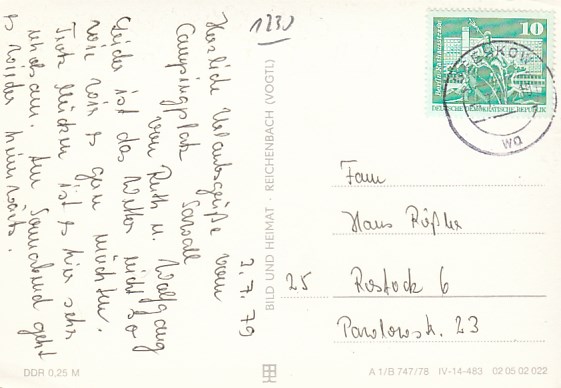 1230
2.7.79
Herzliche Urlaubsgrüße vom
Campingplatz
von Ruth u. Wolfgang
Leider ist das Wetter nicht so
wie wir es gern möchten.
Trotz Mücken ist es hier sehr
erholsam. Am Sonnabend geht
es wieder heimwärts.
BILD UND HEIMAT · REICHENBACH (VOGTL)
10
Berlin, Rathausstraße
DEUTSCHE DEMOKRATISCHE REPUBLIK
BEESKOW
wa
Fam
Hans Rößler
25 Rostock 6
Pawlowstr. 23
DDR 0,25 M
A 1/B 747/78 IV-14-483 02 05 02 022